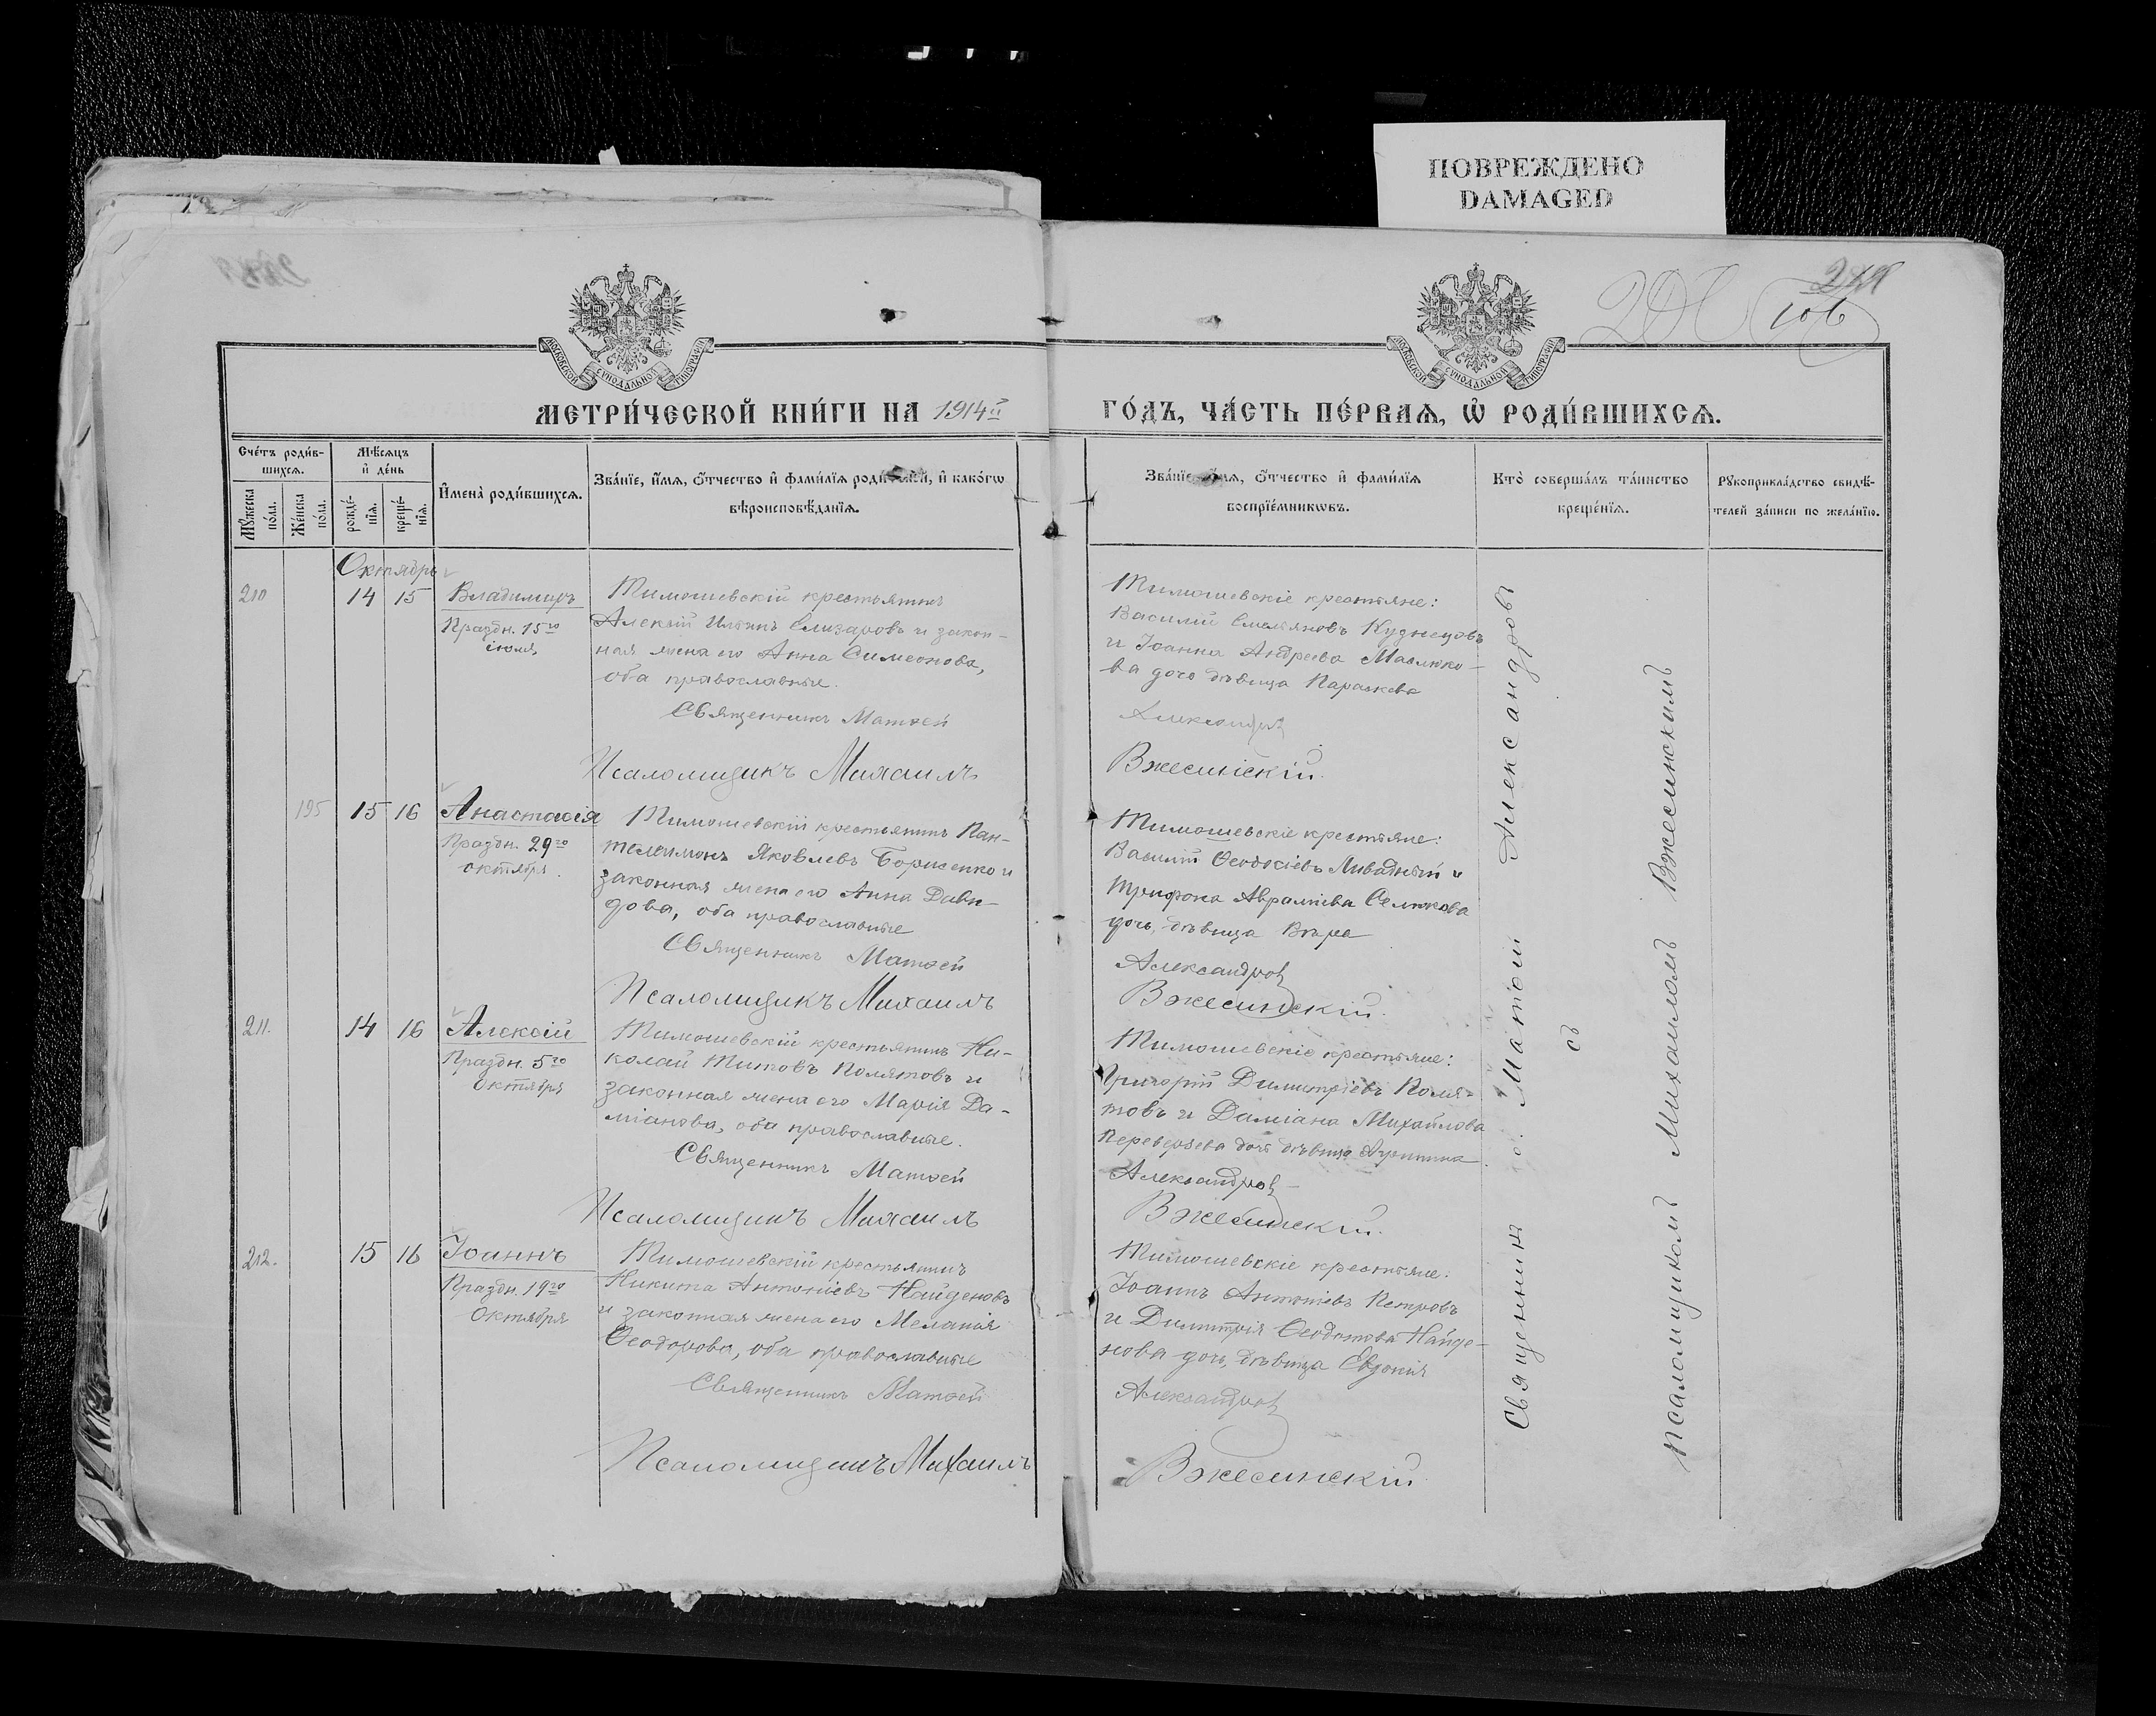 ПОВРЕЖДЕНО
DAMAGED
106
МОСКОВСКОЙ СУНОДАЛЬНОЙ ТИПОГРАФІИ
МОСКОВСКОЙ СУНОДАЛЬНОЙ ТИПОГРАФІИ
МЕТРИ́ЧЕСКОЙ КНИ́ГИ НА 1914й
ГО́ДЪ, ЧА́СТЬ ПЕ́РВАѦ, Ѡ҆ РОДИ́ВШИХСѦ.
Сче́тъ роди́в-
шихсѧ.
Мꙋ́жеска по́ла.
Же́нска по́ла.
Мѣ́сѧцъ
и҆ де́нь
рожде́-
нїѧ.
креще́-
нїѧ.
И҆мена̀ роди́вшихсѧ.
Зва́нїе, и҆́мѧ, ѻ҆́тчество и҆ фами́лїѧ роди́телей, и҆ како́гѡ
вѣроисповѣ́данїѧ.
Зва́нїе, и҆́мѧ, ѻ҆́тчество и҆ фами́лїѧ
воспрїе́мникѡвъ.
Кто̀ соверша́лъ та́инство
креще́нїѧ.
Рꙋкоприкла́дство свидѣ́-
телей за́писи по жела́нїю.
Октябрь
210 14 15 Владимиръ
Праздн. 15го
іюля
Тимошевскій крестьянинъ
Алексій Ильинъ Елизаровъ и закон-
ная жена его Анна Симеонова,
оба православные.
Священникъ Матѳей
Псаломщикъ Михаилъ
Тимошевскіе крестьяне:
Василий Емельяновъ Кузнецовъ
и Іоанна Андреева Маслюко-
ва дочь дѣвица Параскева
Александровъ
Вжесинскій.
195 15 16 Анастасія
Праздн. 29го
октября.
Тимошевскій крестьянинъ Пан-
телеимонъ Яковлевъ Борисенко и
законная жена его Анна Дави-
дова, оба православные
Священникъ Матѳей
Псаломщикъ Михаилъ
Тимошевскіе крестьяне:
Василій Ѳеодосіевъ Ливадный и
Трифона Аврамиева Селюкова
дочь, дѣвица Вѣра
Александровъ
Вжесинскій.
211. 14 16 Алексій
Праздн. 5го
Октября
Тимошевскій крестьянинъ Ни-
колай Титовъ Полятовъ и
законная жена его Марія Да-
міанова, оба православные.
Священникъ Матѳей
Псаломщикъ Михаилъ
Тимошевскіе крестьяне:
Григорій Димитріевъ Поля-
товъ и Даміана Михайлова
Переверзева дочь дѣвица
Александровъ
Вжесинскій.
212. 15 16 Іоаннъ
Праздн. 19го
Октября
Тимошевскій крестьянинъ
Никита Антоніевъ Найденовъ
и законная жена его Меланія
Ѳеодорова, оба православные
Священникъ Матѳей
Псаломщикъ Михаилъ
Тимошевскіе крестьяне:
Іоаннъ Антоніевъ Петровъ
и Димитрія Ѳеодотова Найде-
нова дочь, дѣвица Евдокія
Александровъ
Вжесинскій.
Священникъ о. Матѳей Александровъ
съ
псаломщикомъ Михаиломъ Вжесинскимъ